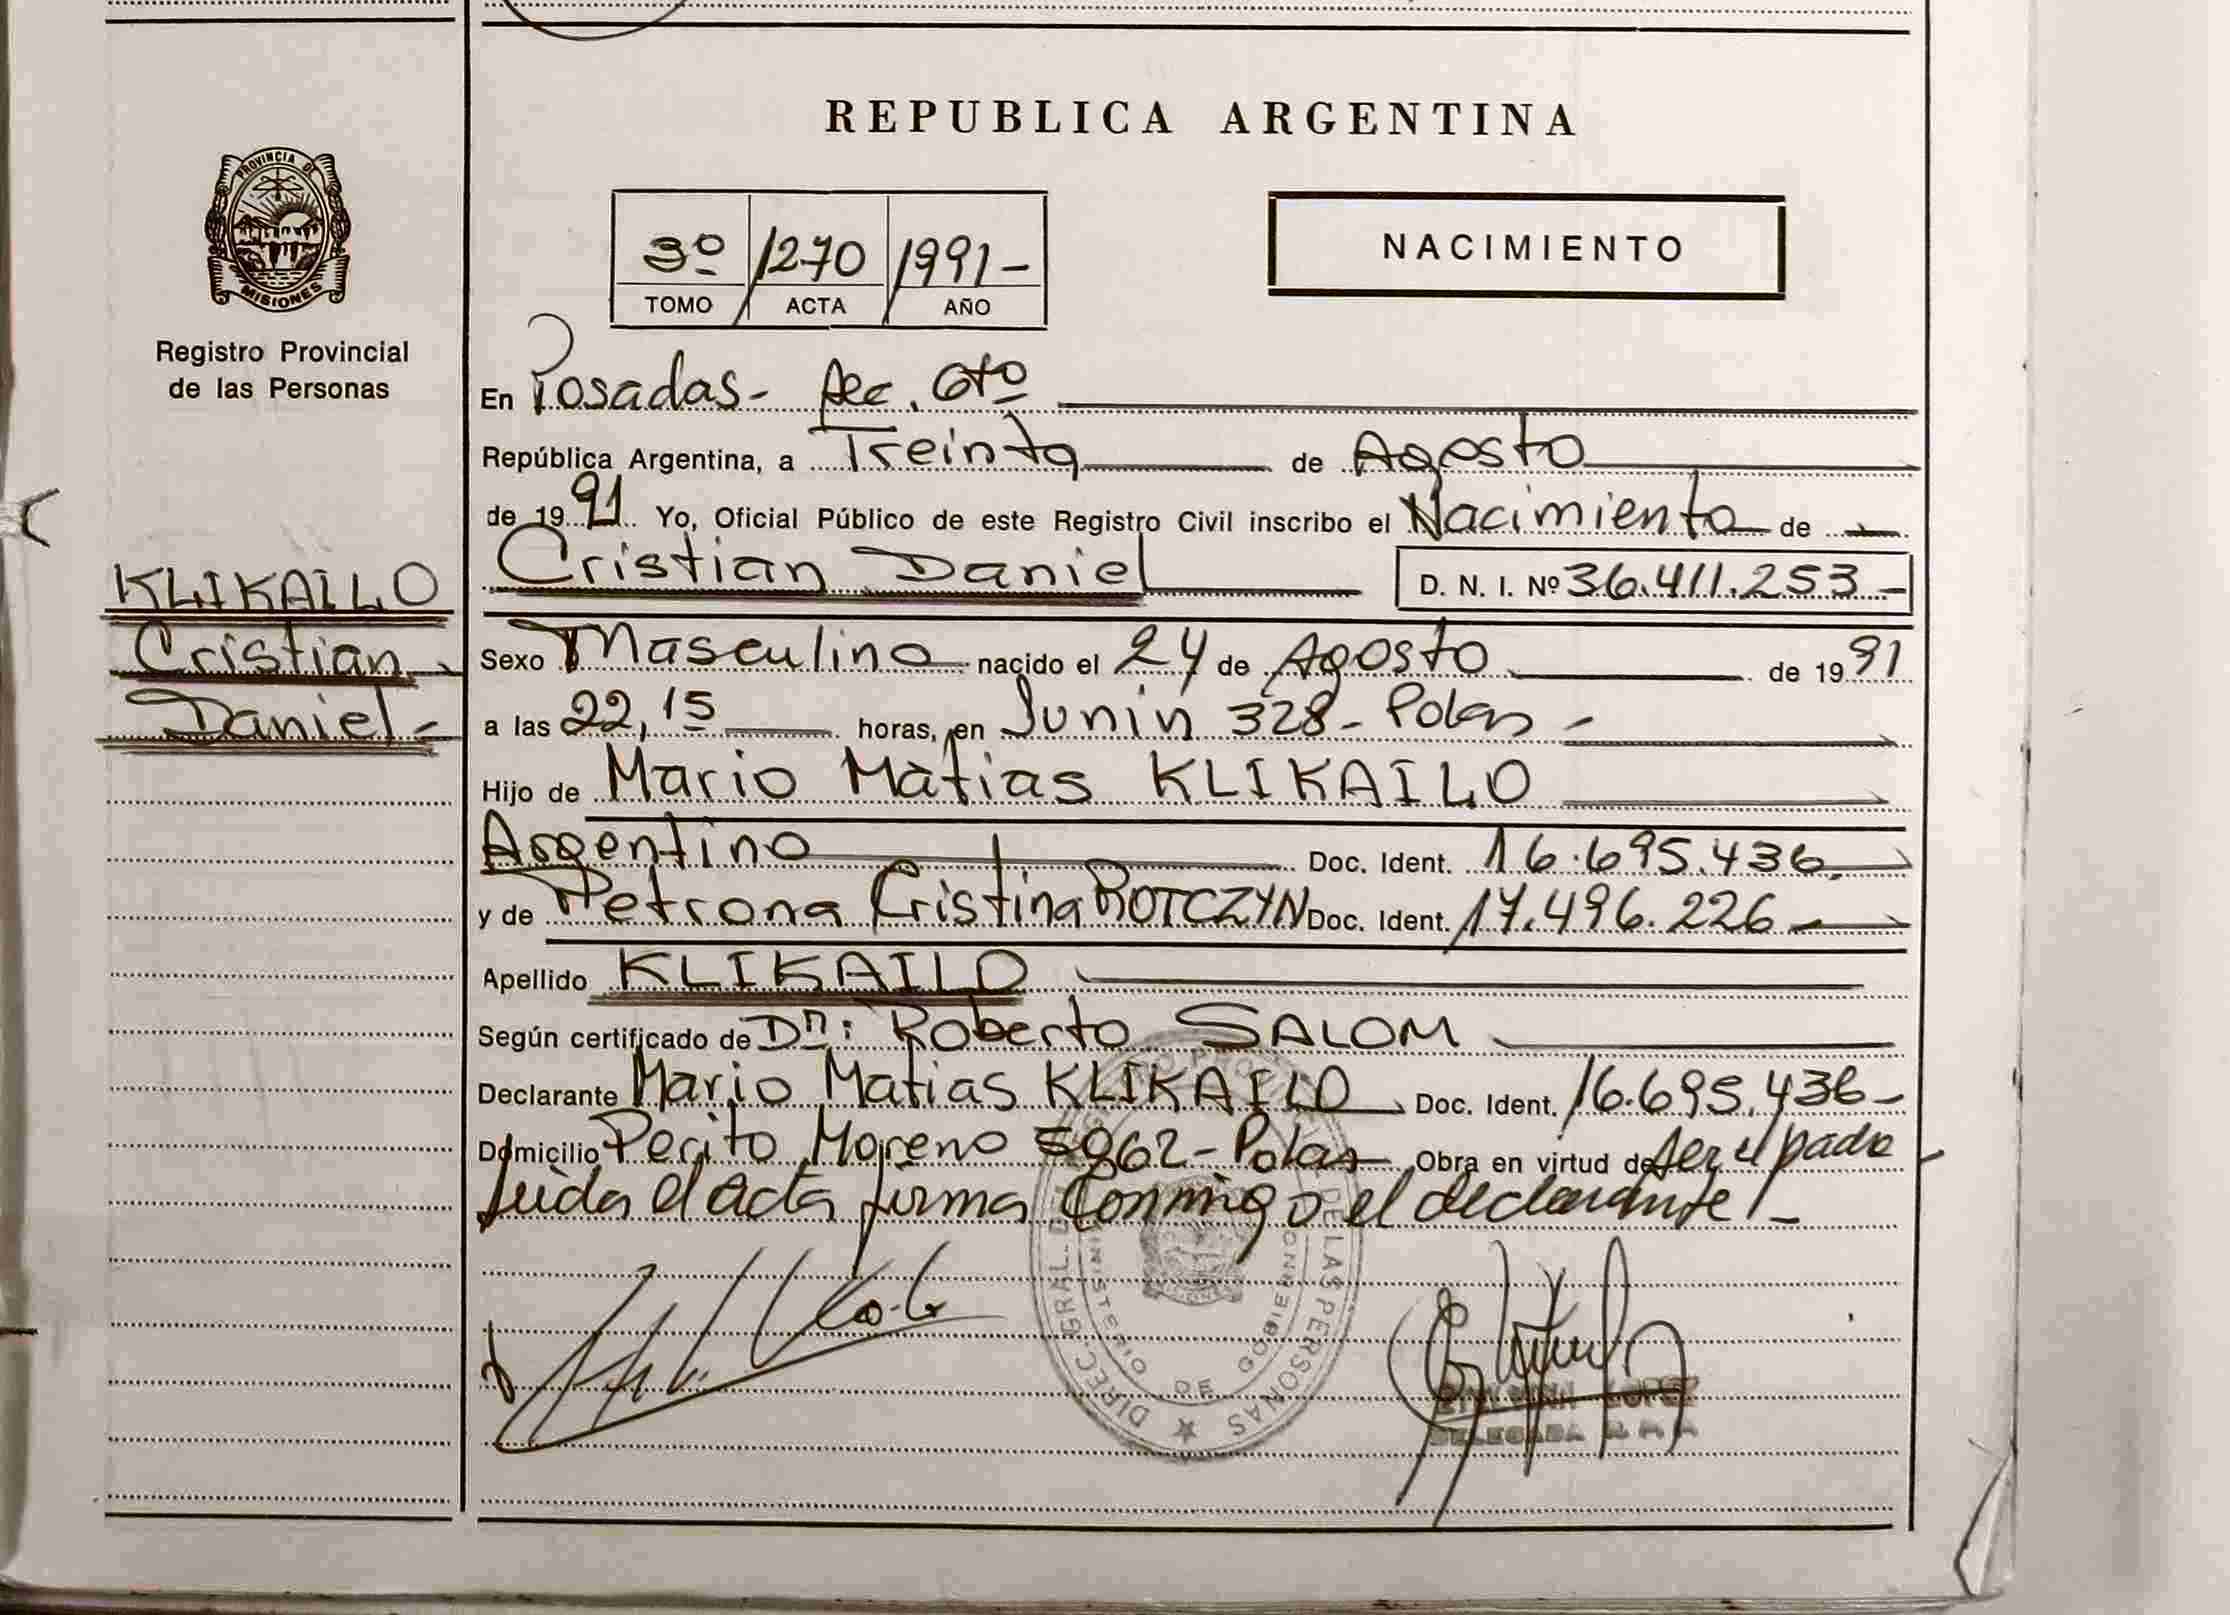 REPUBLICA ARGENTINA
PROVINCIA DE
MISIONES
Registro Provincial
de las Personas
3º /1270 /1991-
TOMO ACTA AÑO
NACIMIENTO
En Posadas- Sec. 6tº
República Argentina, a Treinta de Agosto
de 1991 Yo, Oficial Público de este Registro Civil inscribo el Nacimiento de
Cristian Daniel D. N. I. Nº 36.411.253-
KLIKAILO
Cristian
Daniel-
Sexo Masculino nacido el 24 de Agosto de 1991
a las 22,15 horas, en Junin 328- Pdas -
Hijo de Mario Matias KLIKAILO
Argentino Doc. Ident. 16.695.436.
y de Petrona Cristina ROTCZYN Doc. Ident. 17.496.226-
Apellido KLIKAILO
Según certificado de Dn: Roberto SALOM
Declarante Mario Matias KLIKAILO Doc. Ident. 16.695.436-
Domicilio Perito Moreno 5962- Pdas Obra en virtud de ser el padre
Leida el acta firma conmigo el declarante!-
DIREC. GRAL. DE LAS PERSONAS
DE GOBIERNO
LOPEZ
DELEGADA